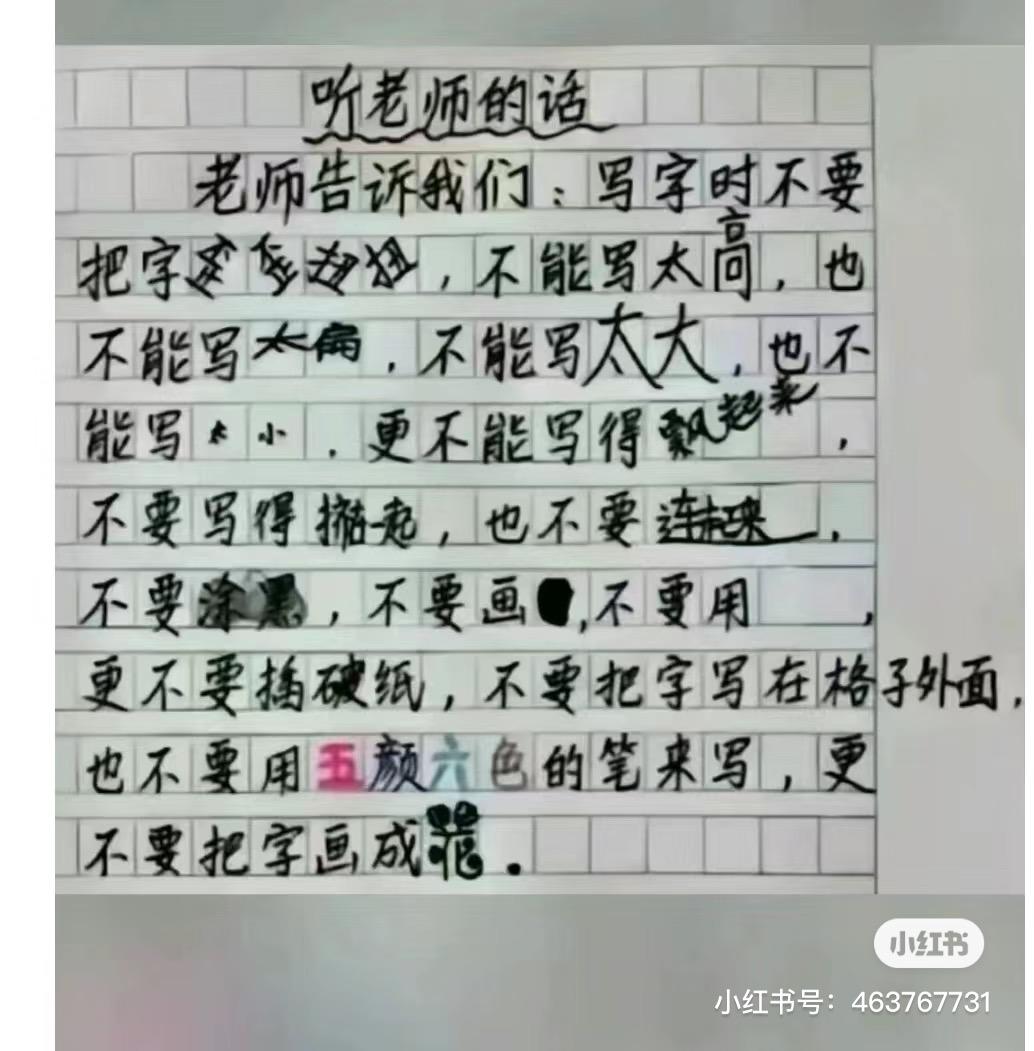 听老师的话
老师告诉我们：写字时不要
把字歪歪扭扭，不能写太高，也
不能写太扁，不能写太大，也不
能写太小．更不能写得飘起来，
不要写得挤一起，也不要连起来．
不要涂黑，不要画，不要用，
更不要搞破纸，不要把字写在格子外面，
也不要用五颜六色的笔来写，更
不要把字画成花．
小红书
小红书号：463767731